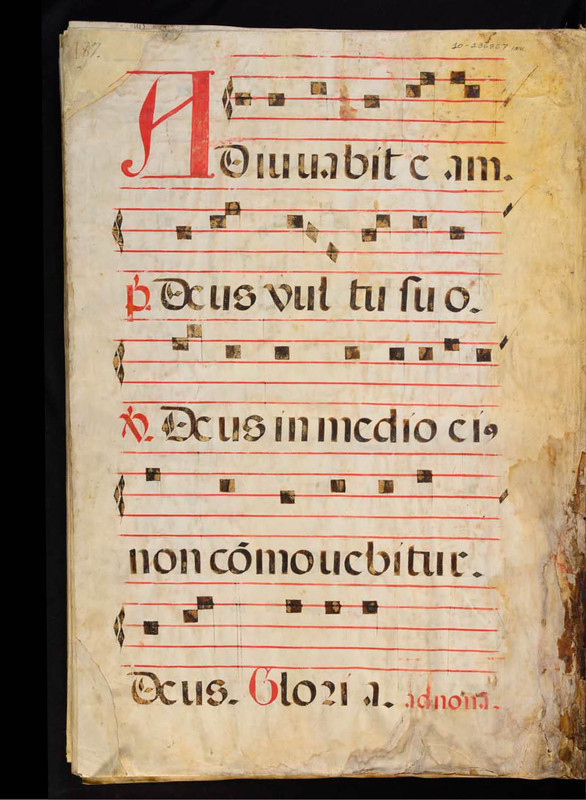 Adiuuabit e am.
℟. Deus vul tu suo.
℣. Deus in medio ei9
non cōmouebitur.
Deus. Gloria. ad nona.